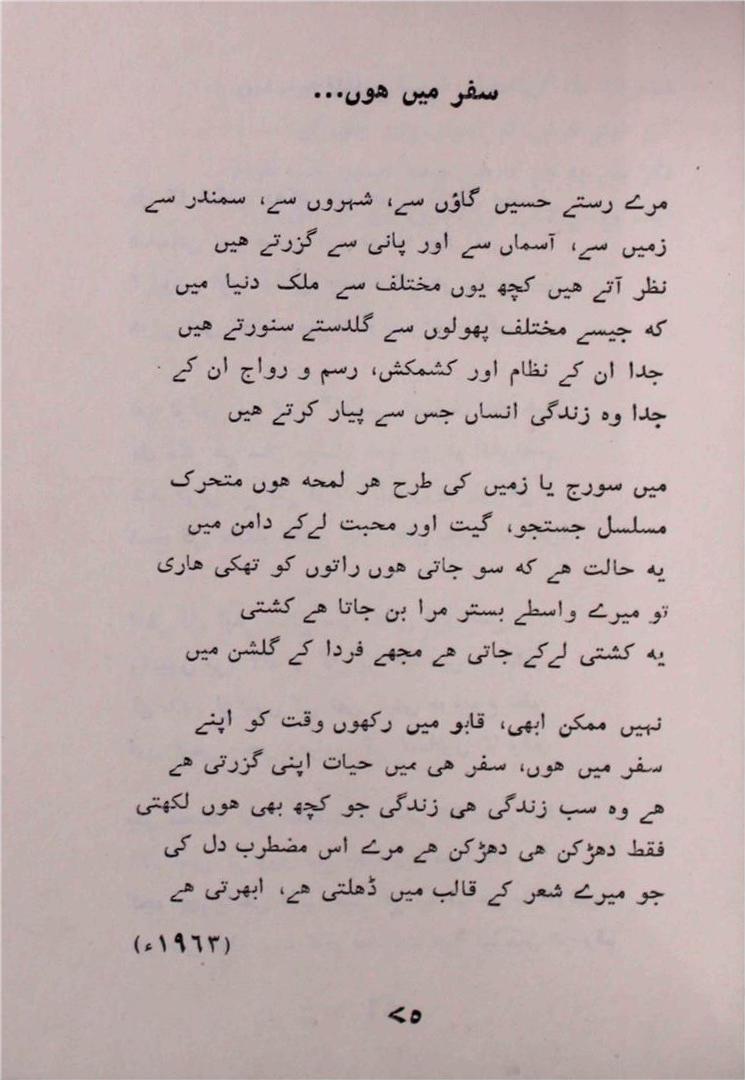 سفر میں ھوں...
مرے رستے حسیں گاؤں سے، شہروں سے، سمندر سے
زمیں سے، آسماں سے اور پانی سے گزرتے ھیں
نظر آتے ھیں کچھ یوں مختلف سے ملک دنیا میں
که جیسے مختلف پھولوں سے گلدستے سنورتے ھیں
جدا ان کے نظام اور کشمکش، رسم و رواج ان کے
جدا وہ زندگی انساں جس سے پیار کرتے ھیں
میں سورج یا زمیں کی طرح ھر لمحه ھوں متحرک
مسلسل جستجو، گیت اور محبت لےکے دامن میں
یه حالت ھے که سو جاتی ھوں راتوں کو تھکی ھاری
تو میرے واسطے بستر مرا بن جاتا ھے کشتی
یه کشتی لےکے جاتی ھے مجھے فردا کے گلشن میں
نہیں ممکن ابھی، قابو میں رکھوں وقت کو اپنے
سفر میں ھوں، سفر ھی میں حیات اپنی گزرتی ھے
ھے وہ سب زندگی ھی زندگی جو کچھ بھی ھوں لکھتی
فقط دھڑکن ھی دھڑکن ھے مرے اس مضطرب دل کی
جو میرے شعر کے قالب میں ڈھلتی ھے، ابھرتی ھے
(۱۹٦۳ء)
۷۵